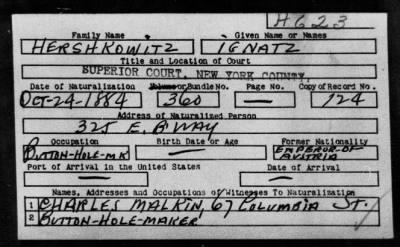 H623
Family Name Given Name or Names
HERSHKOWITZ IGNATZ
Title and Location of Court
SUPERIOR COURT, NEW YORK COUNTY.
Date of Naturalization Volume or Bundle No. Page No. Copy of Record No.
OCT-24-1884 360 — 124
Address of Naturalized Person
325 E. BWAY
Occupation Birth Date or Age Former Nationality
BUTTON-HOLE-MK — EMPEROR-OF AUSTRIA
Port of Arrival in the United States Date of Arrival
— —
Names, Addresses and Occupations of Witnesses To Naturalization
1 CHARLES MALKIN, 67 COLUMBIA ST.
2 BUTTON-HOLE-MAKER